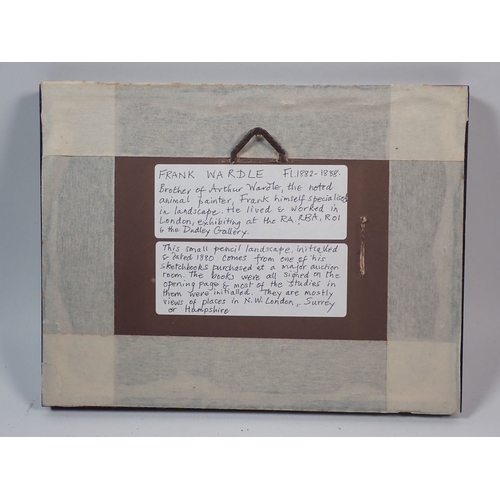 FRANK WARDLE Fl. 1882-1888.
Brother of Arthur Wardle, the noted
animal painter, Frank himself specialised
in landscape. He lived & worked in
London, exhibiting at the RA, RBA, ROI
& the Dudley Gallery.
This small pencil landscape, initialled
& dated 1880 comes from one of his
sketchbooks purchased at a major auction
room. The books were all signed on the
opening page & most of the studies in
them were initialled. They are mostly
views of places in N.W. London, Surrey
or Hampshire